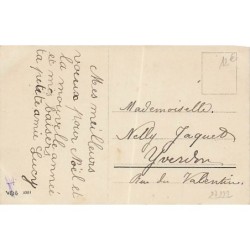 Mes meilleurs
vœux pour Noël et
la nouvelle année
et mes baisers
ta petite amie Lucy
Mademoiselle
Nelly Jaquet
Yverdon
Rue du Valentin